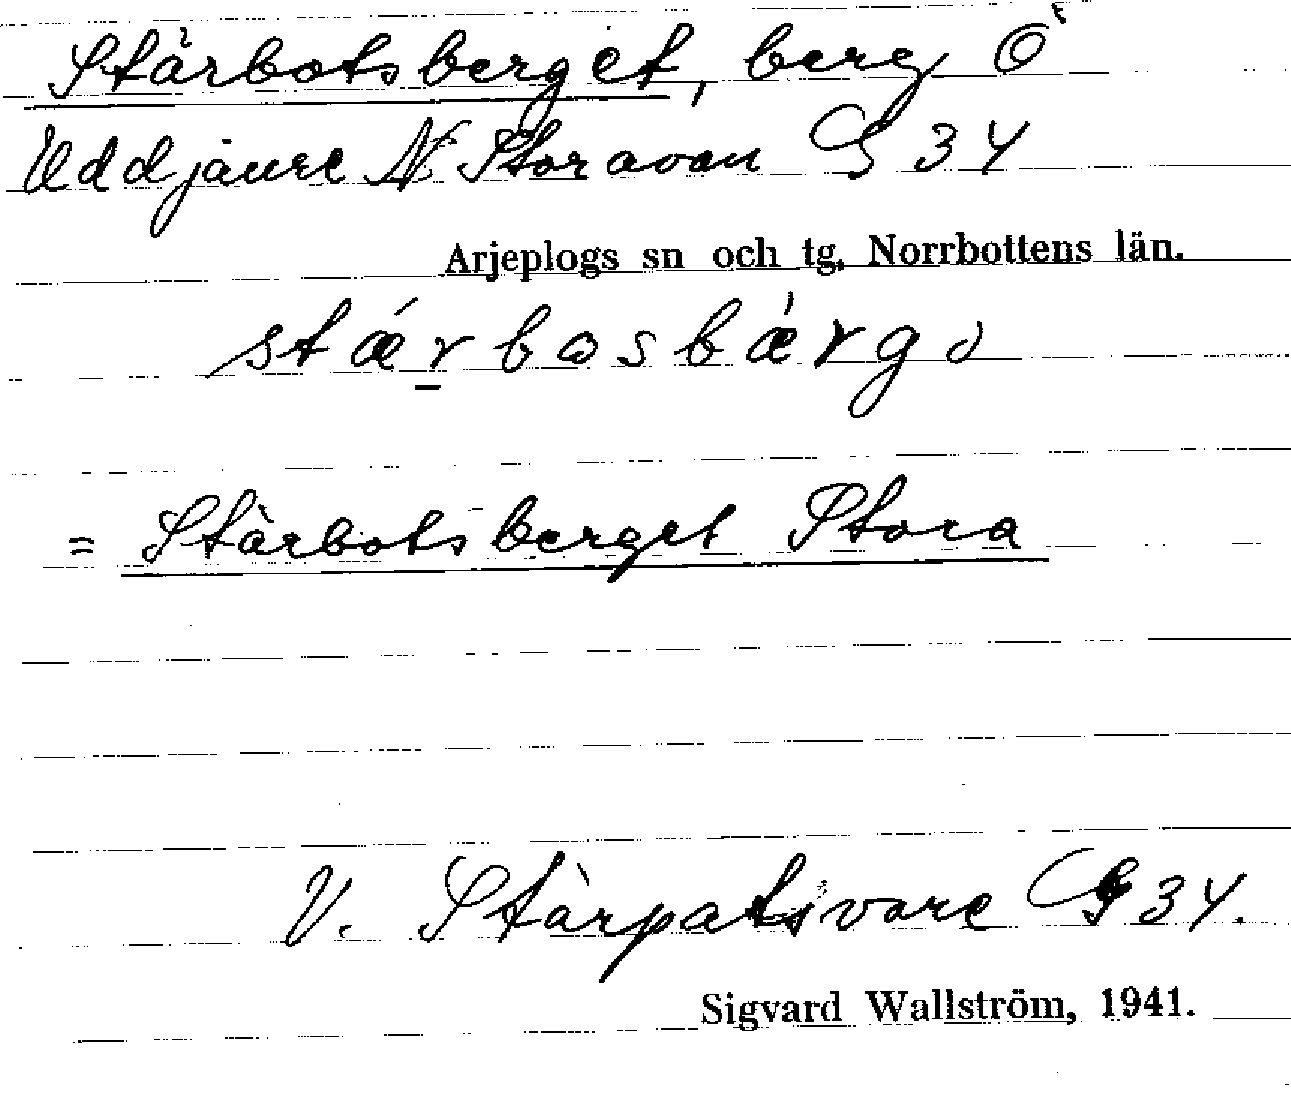 Stärbotsberget, berg Ö
Uddjaure N Storavan G 34
Arjeplogs sn och tg, Norrbottens län.
stǽrbosbǽrgə
= Stärbotsberget Stora
V. Stärpatsvare G 34.
Sigvard Wallström, 1941.